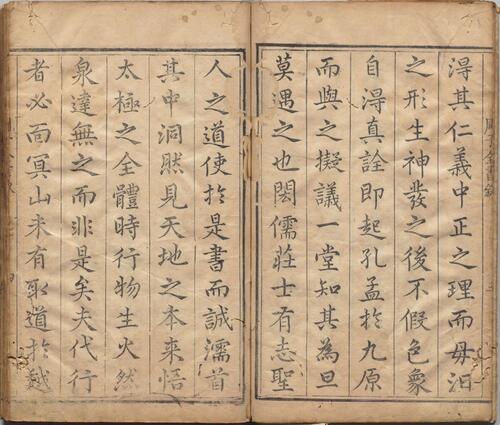 淂其仁義中正之理而毋汨
之形生神發之後不假色象
自淂真詮即起孔孟扵九原
而與之擬議一堂知其為旦
莫遇之也閎儒莊士有志聖
人之道使扵是書而誠濡首
其中洞然見天地之本来悟
太極之全體時行物生火然
泉達無之而非是矣夫代行
者必面冥山未有取道扵越